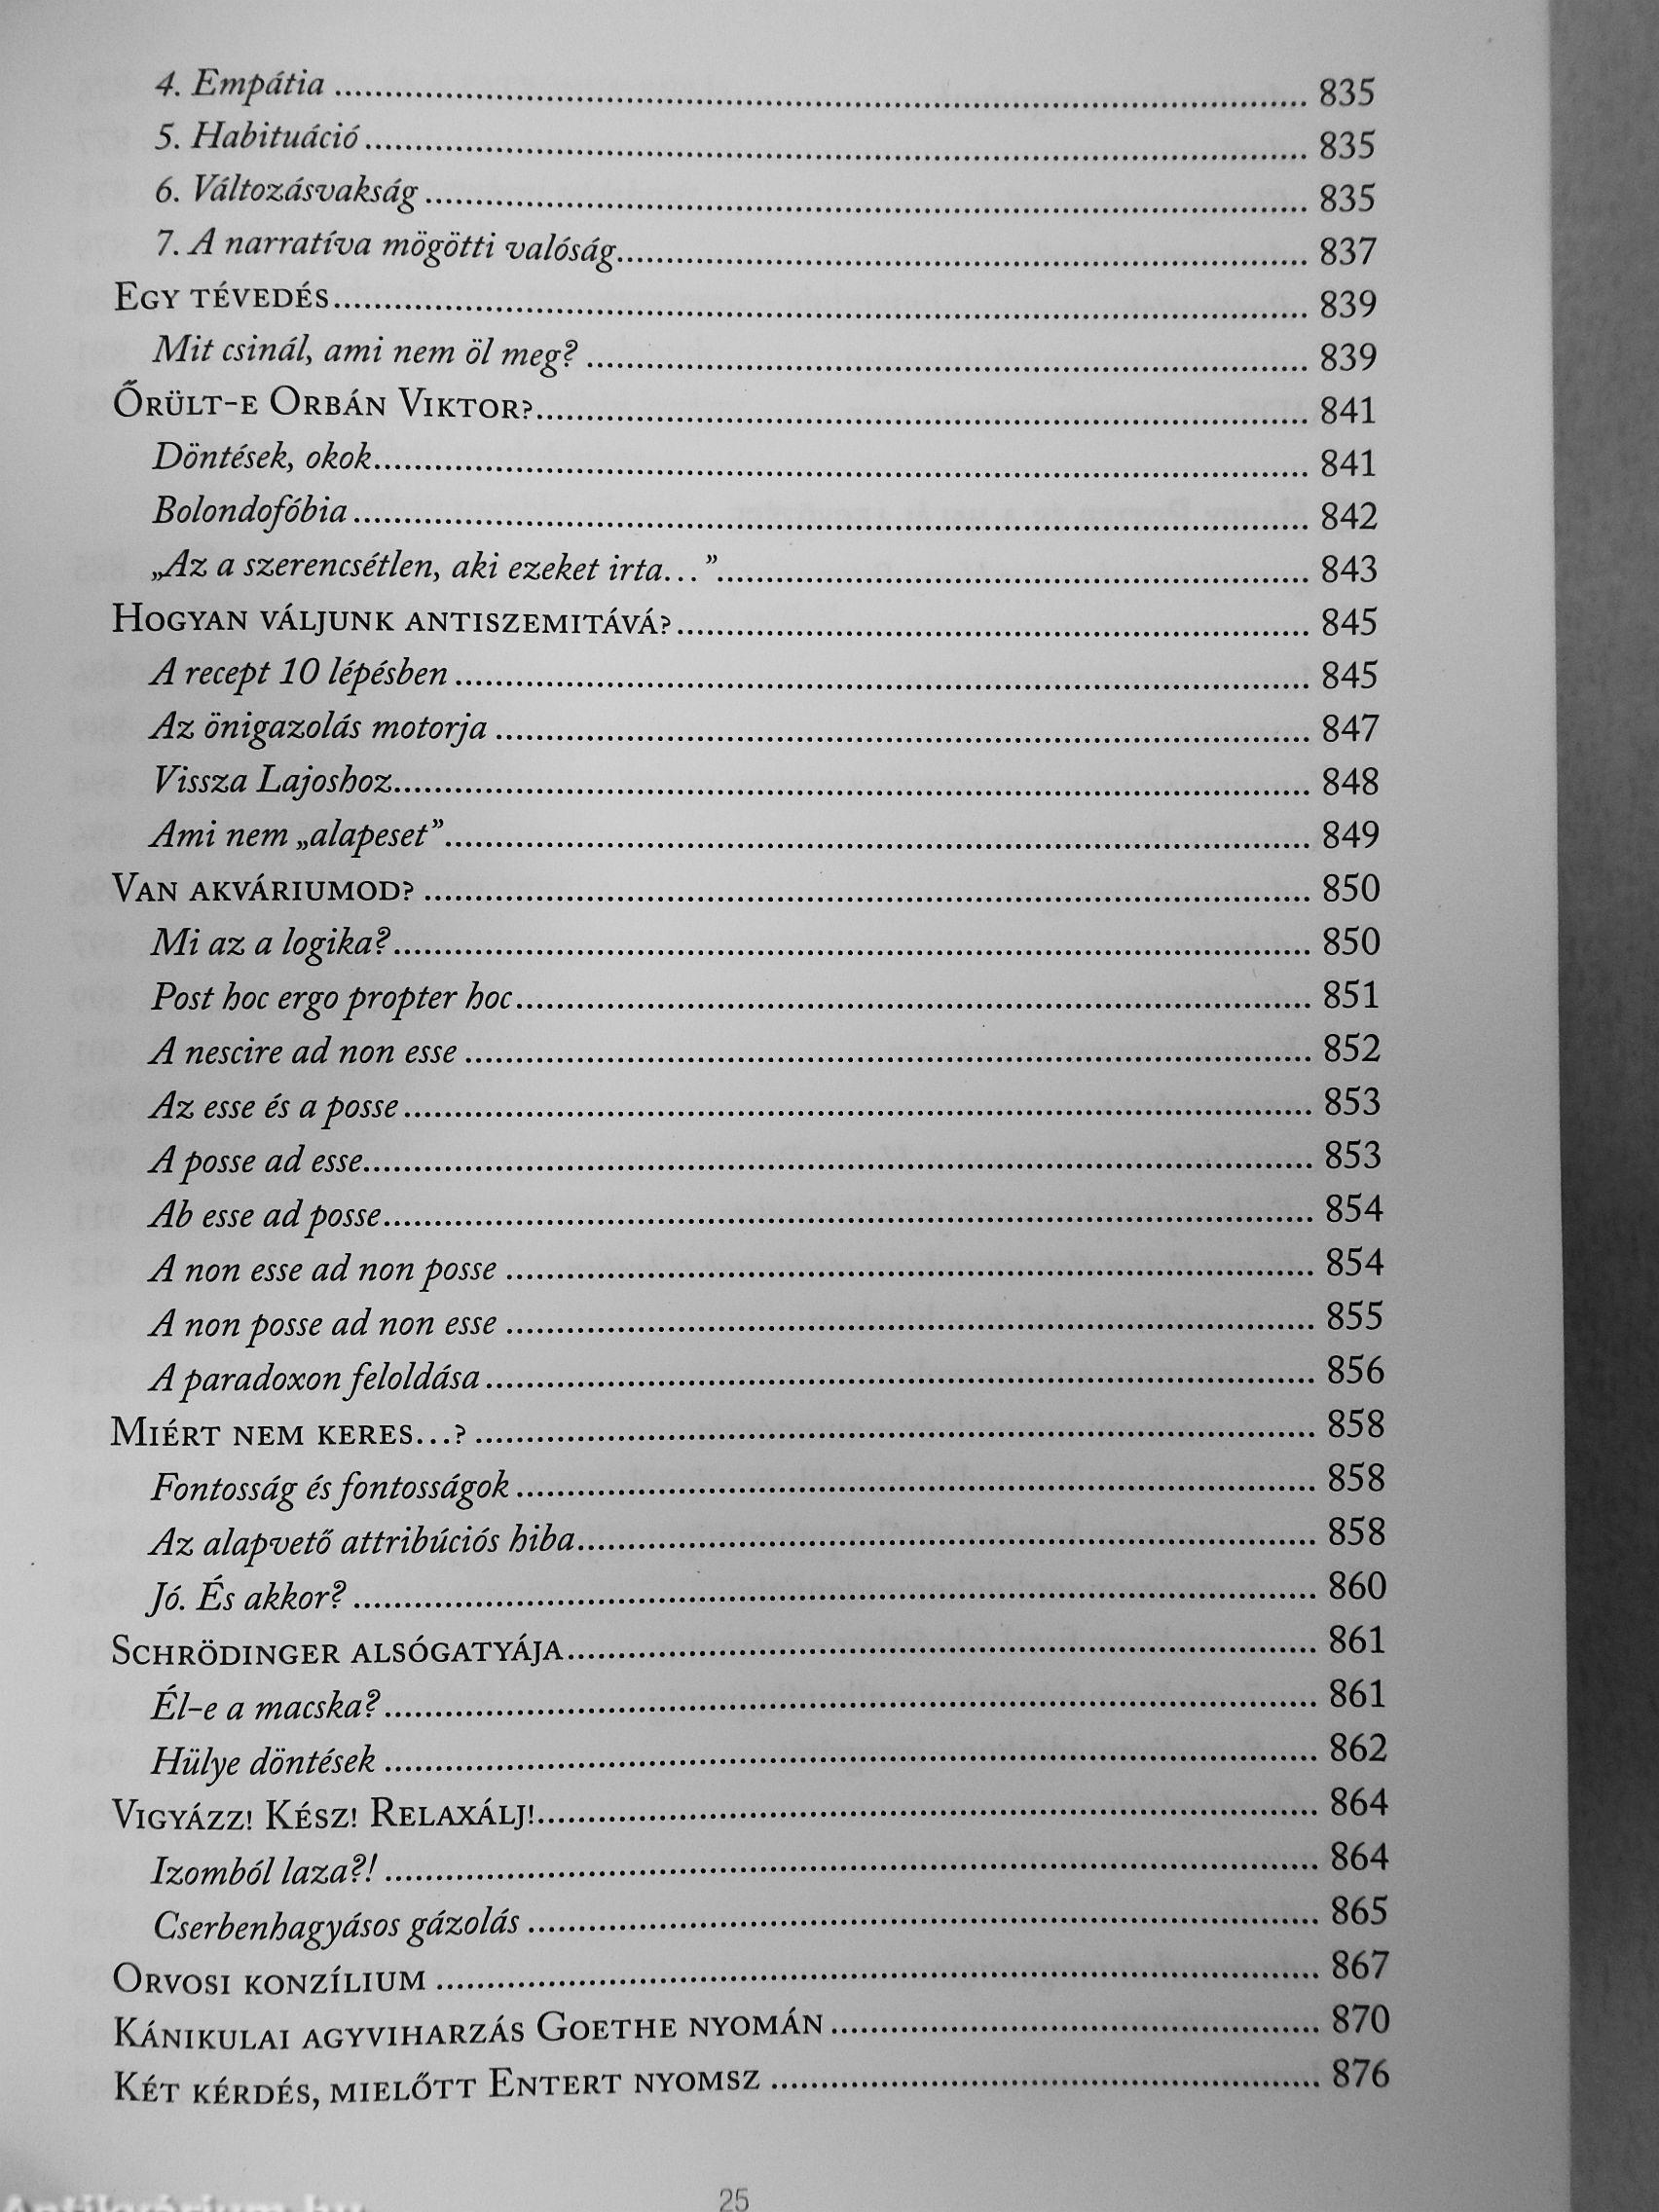 4. Empátia ........ 835
5. Habituáció ........ 835
6. Változásvakság ........ 835
7. A narratíva mögötti valóság ........ 837
EGY TÉVEDÉS ........ 839
Mit csinál, ami nem öl meg? ........ 839
ŐRÜLT-E ORBÁN VIKTOR? ........ 841
Döntések, okok ........ 841
Bolondofóbia ........ 842
„Az a szerencsétlen, aki ezeket irta…” ........ 843
HOGYAN VÁLJUNK ANTISZEMITÁVÁ? ........ 845
A recept 10 lépésben ........ 845
Az önigazolás motorja ........ 847
Vissza Lajoshoz ........ 848
Ami nem „alapeset” ........ 849
VAN AKVÁRIUMOD? ........ 850
Mi az a logika? ........ 850
Post hoc ergo propter hoc ........ 851
A nescire ad non esse ........ 852
Az esse és a posse ........ 853
A posse ad esse ........ 853
Ab esse ad posse ........ 854
A non esse ad non posse ........ 854
A non posse ad non esse ........ 855
A paradoxon feloldása ........ 856
MIÉRT NEM KERES…? ........ 858
Fontosság és fontosságok ........ 858
Az alapvető attribúciós hiba ........ 858
Jó. És akkor? ........ 860
SCHRÖDINGER ALSÓGATYÁJA ........ 861
Él-e a macska? ........ 861
Hülye döntések ........ 862
VIGYÁZZ! KÉSZ! RELAXÁLJ! ........ 864
Izomból laza?! ........ 864
Cserbenhagyásos gázolás ........ 865
ORVOSI KONZÍLIUM ........ 867
KÁNIKULAI AGYVIHARZÁS GOETHE NYOMÁN ........ 870
KÉT KÉRDÉS, MIELŐTT ENTERT NYOMSZ ........ 876
25